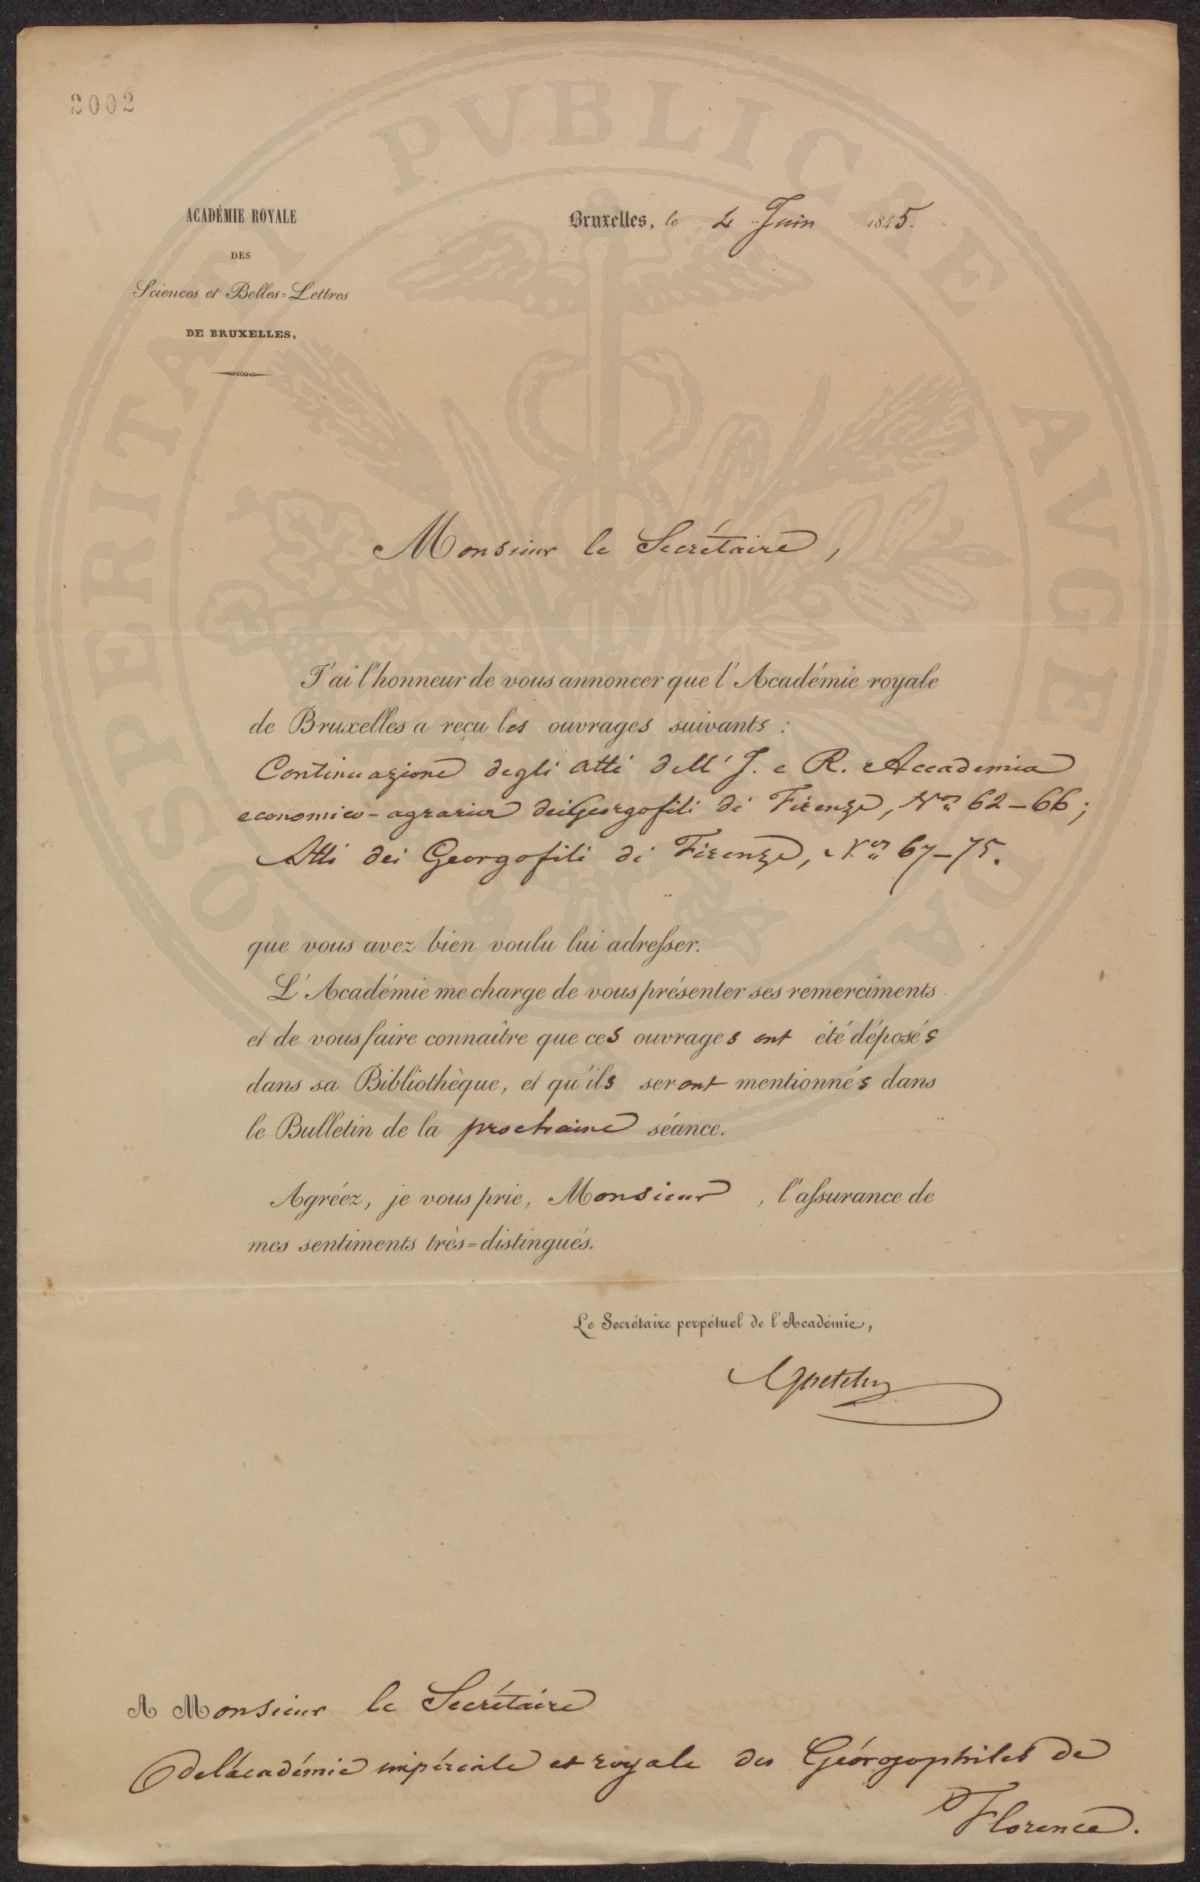 2002
ACADÉMIE ROYALE
DES
Sciences et Belles-Lettres
DE BRUXELLES.
Bruxelles, le 4 Juin 1845.
Monsieur le Secrétaire,
J'ai l'honneur de vous annoncer que l'Académie royale
de Bruxelles a reçu les ouvrages suivants :
Continuazione degli atti dell' J. e R. Accademia
economico-agraria dei Georgofili di Firenze, Nos 62-66;
Atti dei Georgofili di Firenze, Nos 67-75.
que vous avez bien voulu lui adresser.
L'Académie me charge de vous présenter ses remerciments
et de vous faire connaître que ces ouvrages ont été déposés
dans sa Bibliothèque, et qu'ils seront mentionnés dans
le Bulletin de la prochaine séance.
Agréez, je vous prie, Monsieur, l'assurance de
mes sentiments très-distingués.
Le Secrétaire perpétuel de l'Académie,
Quetelet
A Monsieur le Secrétaire
de l'académie impériale et royale des Géorgophiles de
Florence.
PROSPERITATI PVBLICAE AVGENDAE